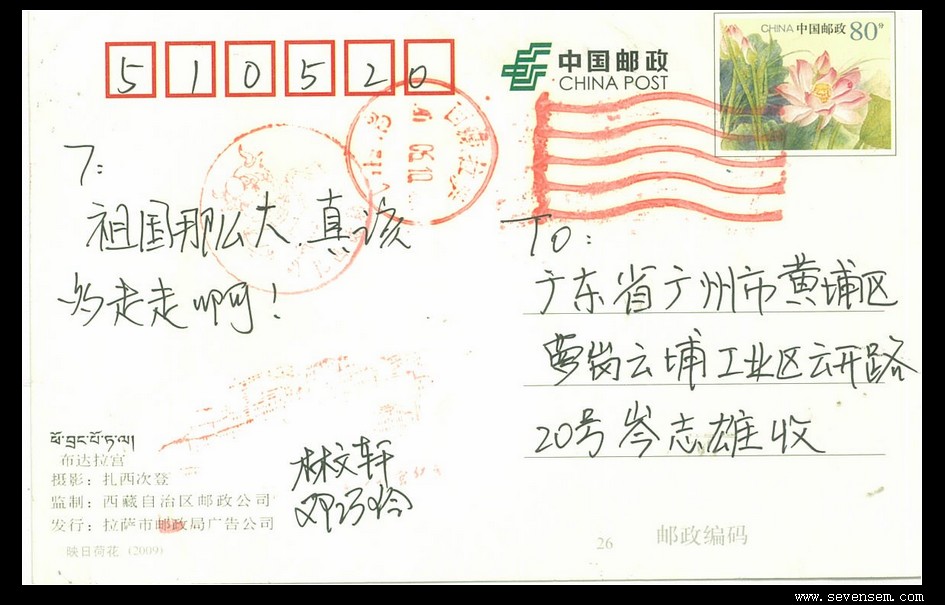 510520
中国邮政
CHINA POST
CHINA 中国邮政 80分
7:
祖国那么大,真该
多走走啊!
To:
广东省广州市黄埔区
萝岗云埔工业区云开路
20号岑志雄收
ཕོ་བྲང་པོ་ཏ་ལ།
布达拉宫
摄影:扎西次登
监制:西藏自治区邮政公司
发行:拉萨市邮政局广告公司
映日荷花 (2009)
林文轩
邓巧玲
26
邮政编码
www.sevensem.com